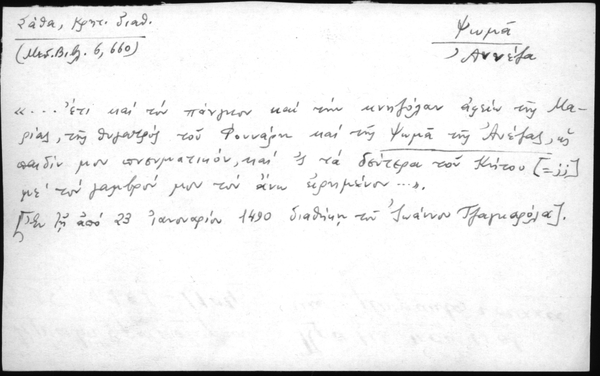 Σάθα, Κρητ. Διαθ.
(Μεσ. Βιβλ. 6, 660)
Ψωμᾶ
Ἀννέζα
«... Ἔτι καὶ τὸν πάγκον καὶ τὴν κνηζόλαν ἀφεὶν τῆς Μα-
ρίας, τῆς θυγατρὸς τοῦ Φουνάρη καὶ τῆς Ψωμᾶ τῆς Ἀνέζας, ὡς
παιδίν μου πνευματικόν, καὶ ἐς τὰ δεύτερα τοῦ Κήτου [=;;]
μὲ τὸν γαμβρόν μου τὸν ἄνω εἰρημένον...».
[Ἐν τῇ ἀπό 23 Ἰανουαρίου 1490 διαθήκῃ τοῦ Ἰωάννου Τζαγκαρόλα].